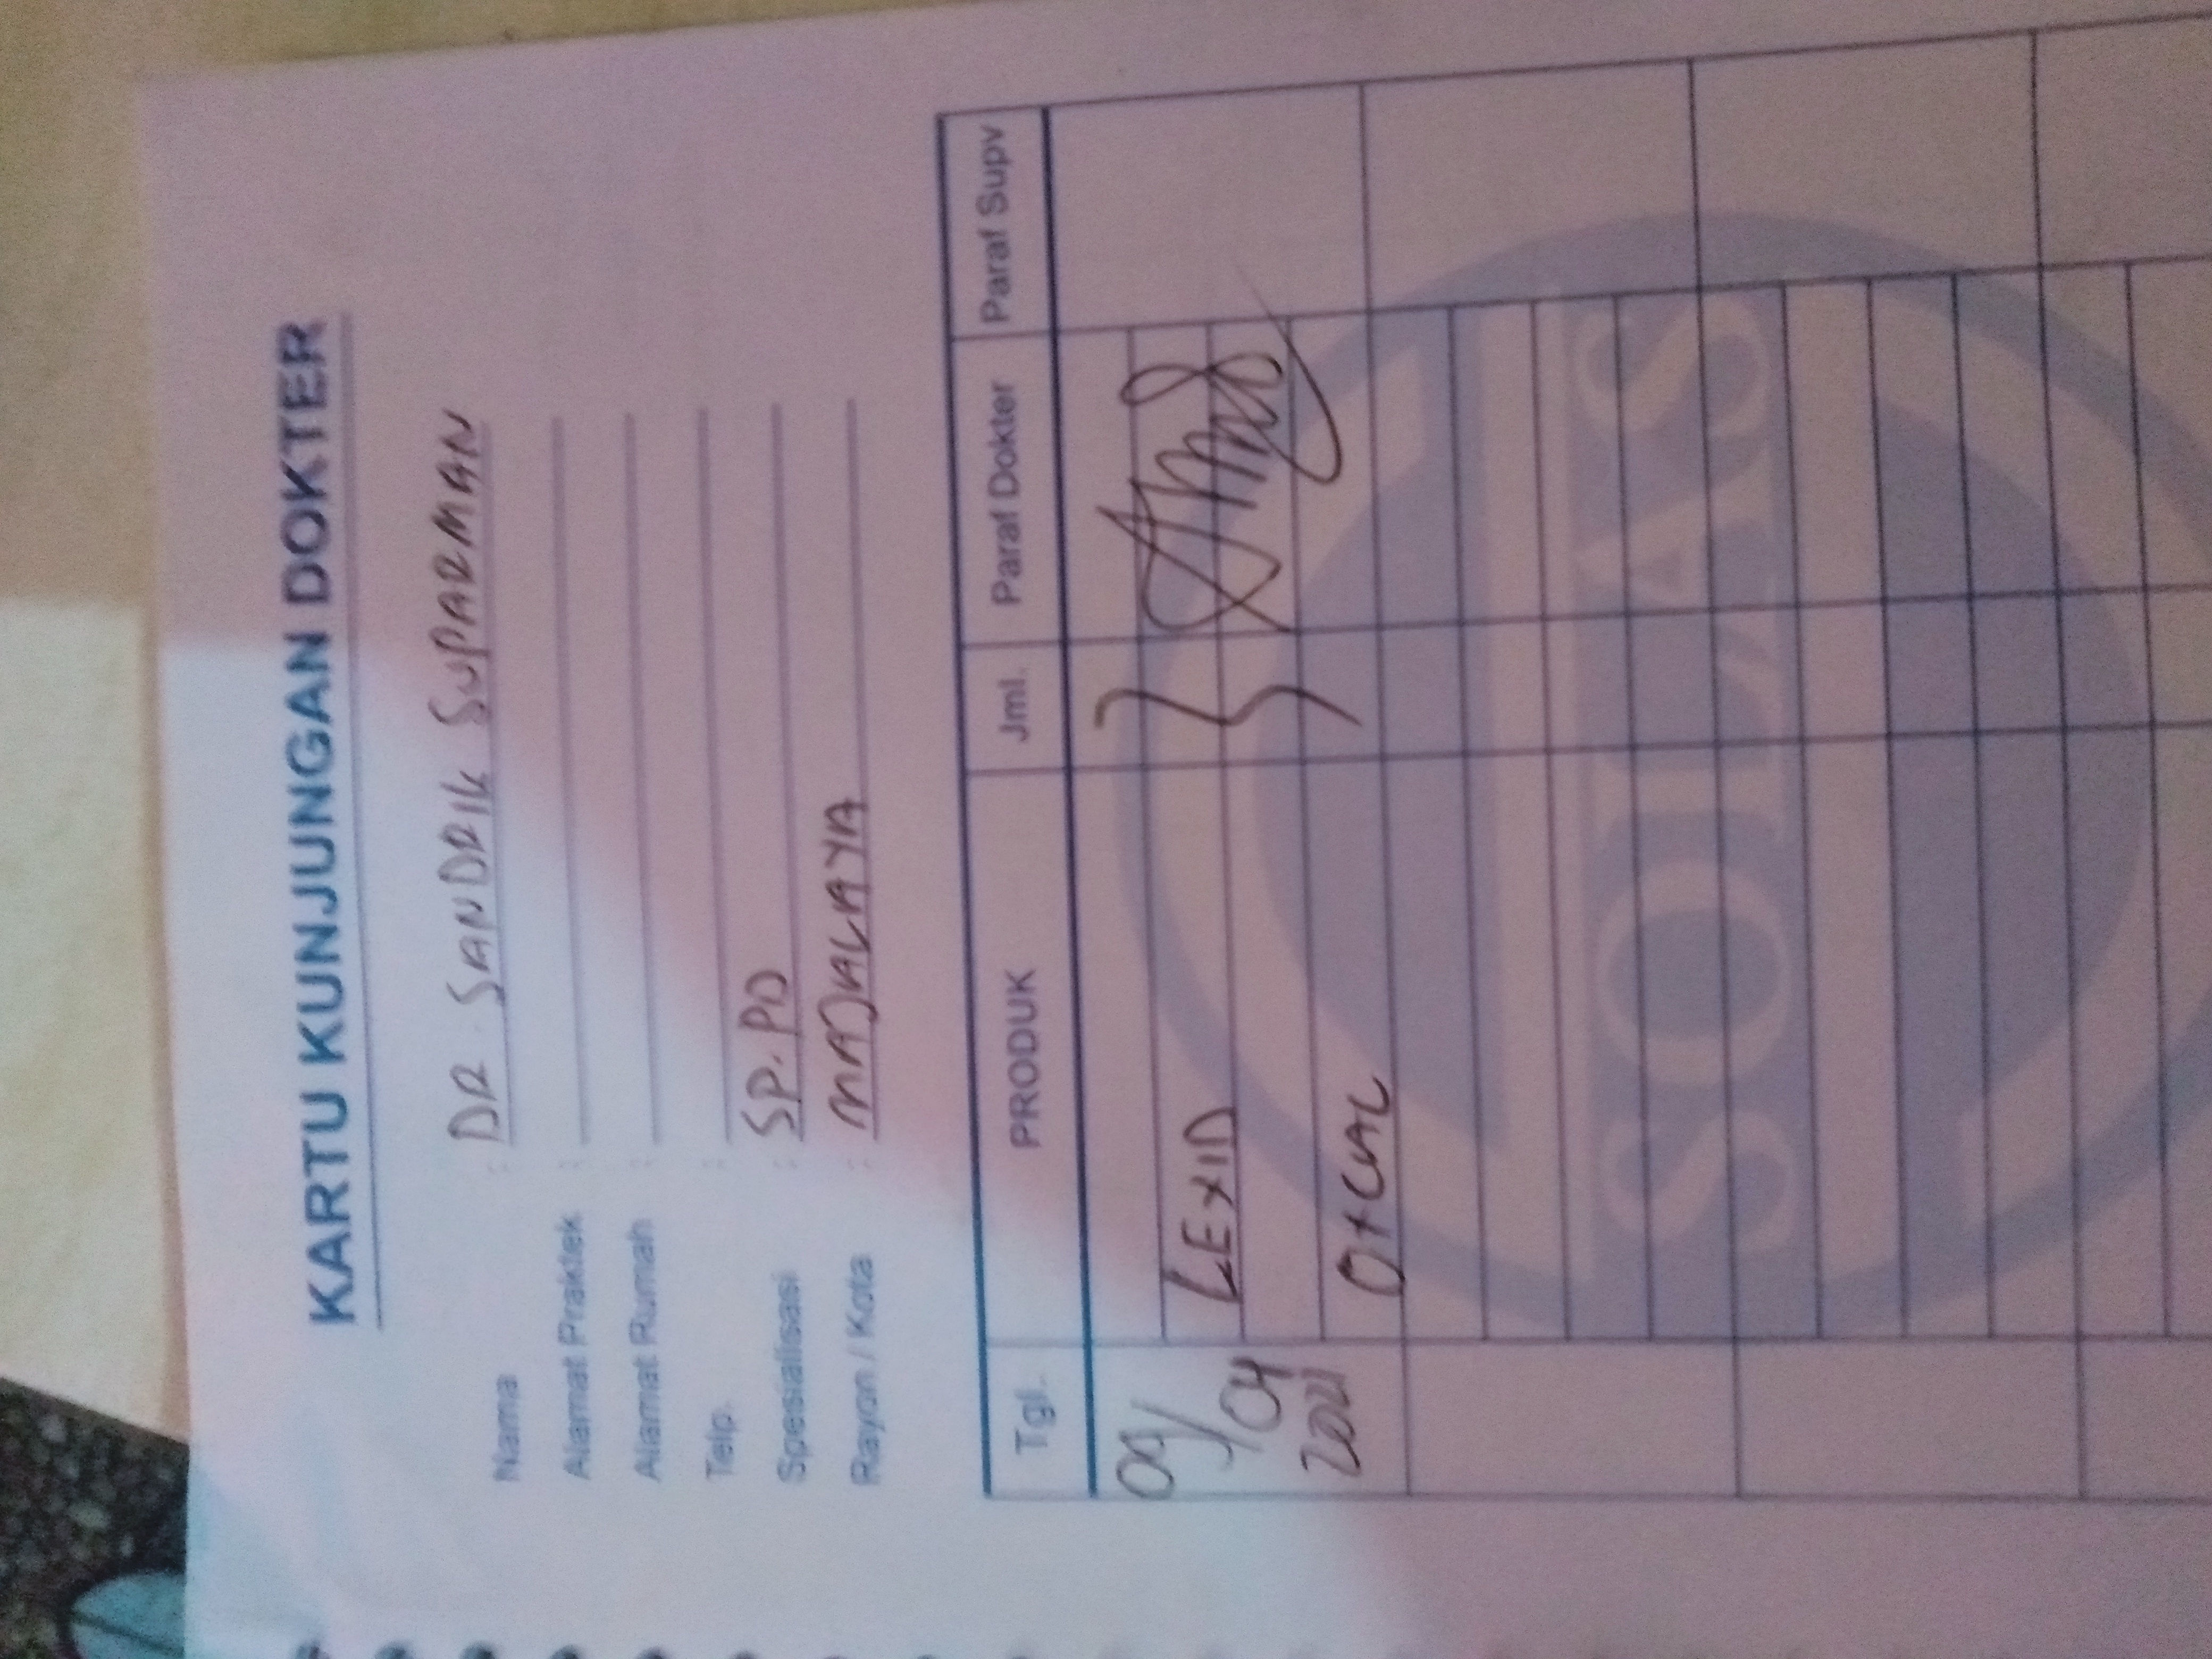 KARTU KUNJUNGAN DOKTER
Nama : DR. SANDRIK SUPARMAN
Alamat Praktek :
Alamat Rumah :
Telp. :
Spesialisasi : SP. PD
Rayon / Kota : MAJALAYA
Tgl. PRODUK Jml. Paraf Dokter Paraf Supv
LEXID
/04
2021
OXCAL
SOLAS